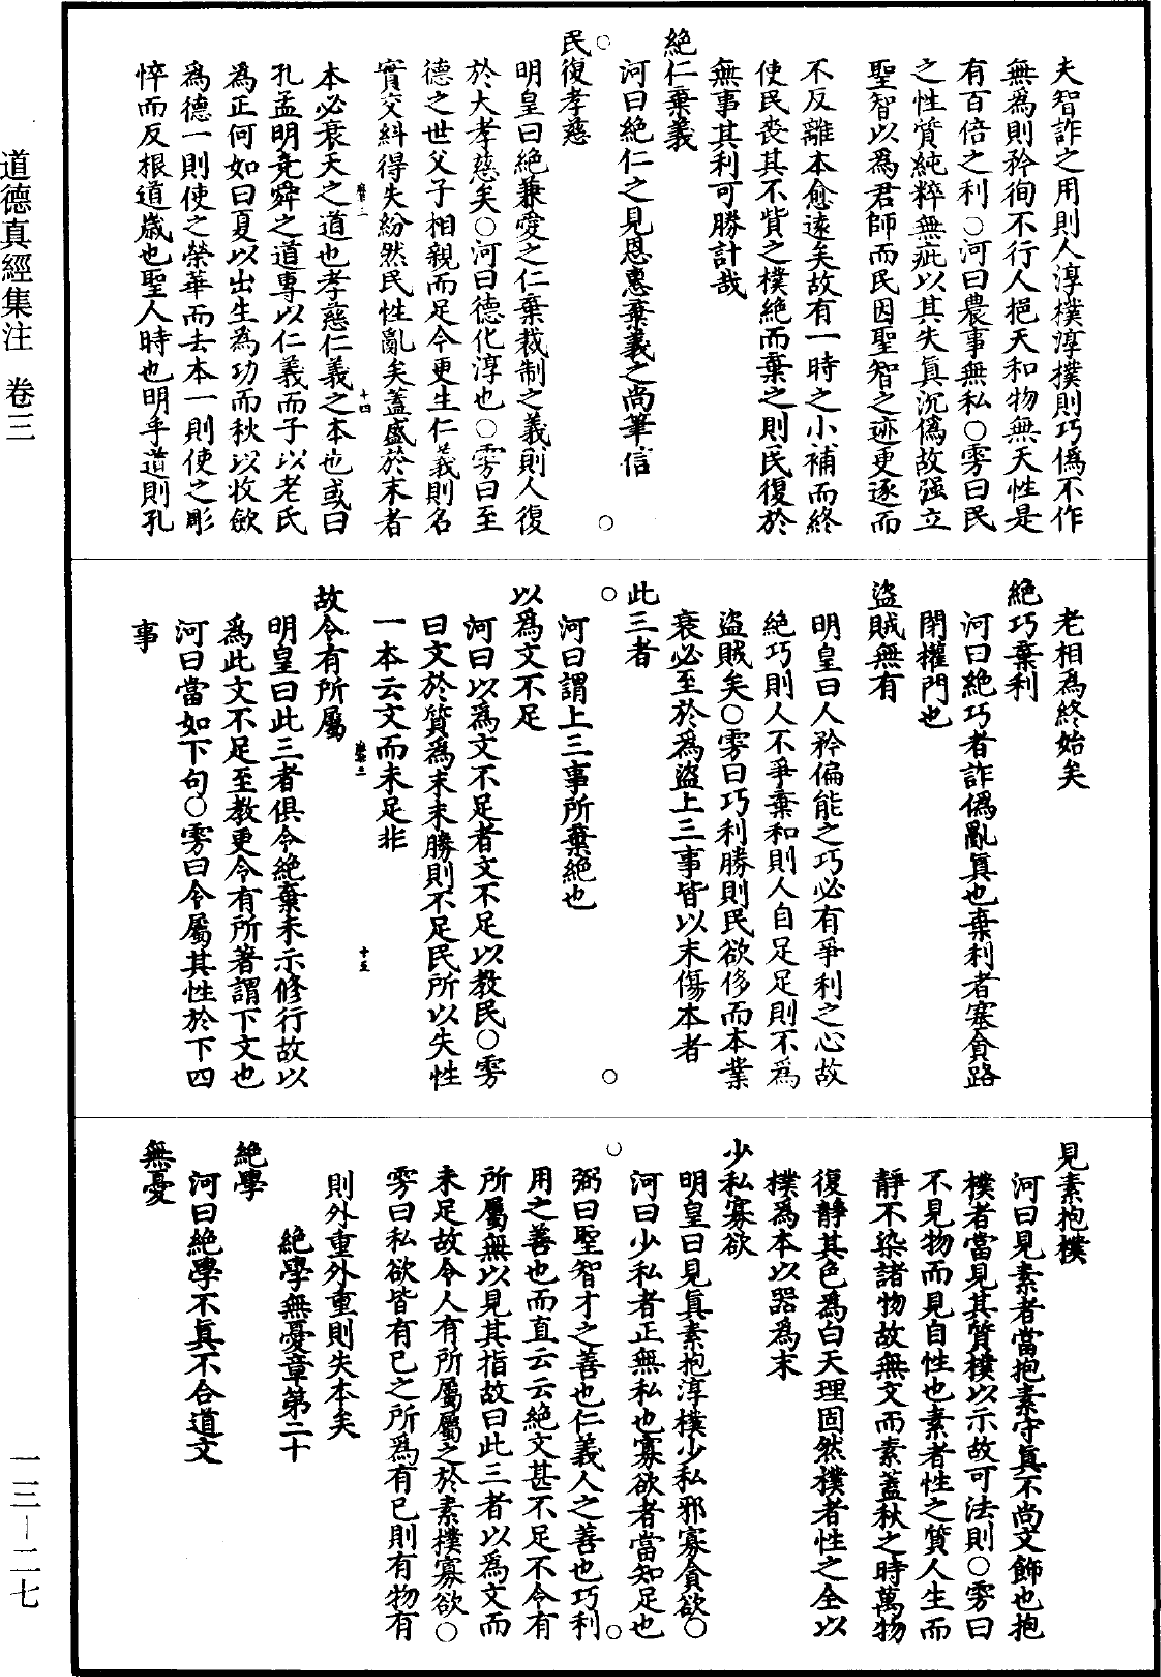 夫智詐之用則人淳樸淳樸則巧僞不作
無爲則矜徇不行人挹天和物無天性是
有百倍之利○河曰農事無私○雱曰民
之性質純粹無疵以其失眞沉僞故强立
聖智以爲君師而民因聖智之迹更逐而
不反離本愈遠矣故有一時之小補而終
使民喪其不貲之樸絶而棄之則民復於
無事其利可勝計哉
絶仁棄義
河曰絶仁之見恩惠棄義之尚華信
民復孝慈
明皇曰絶兼愛之仁棄裁制之義則人復
於大孝慈矣○河曰德化淳也○雱曰至
德之世父子相親而足今更生仁義則名
實交糾得失紛然民性亂矣蓋盛於末者
本必衰天之道也孝慈仁義之本也或曰
孔孟明堯舜之道專以仁義而子以老氏
為正何如曰夏以出生為功而秋以收斂
爲德一則使之榮華而去本一則使之彫
悴而反根道歲也聖人時也明乎道則孔
十四
老相為終始矣
絶巧棄利
河曰絶巧者詐僞亂眞也棄利者塞貪路
閉權門也
盜賊無有
明皇曰人矜偏能之巧必有爭利之心故
絶巧則人不爭棄和則人自足足則不爲
盜賊矣○雱曰巧利勝則民欲侈而本業
衰必至於爲盜上三事皆以末傷本者
此三者
河曰謂上三事所棄絶也
以爲文不足
河曰以爲文不足者文不足以教民○雱
曰文於質爲末末勝則不足民所以失性
一本云文而未足非
故令有所屬
明皇曰此三者俱令絶棄未示修行故以
爲此文不足至教更令有所著謂下文也
河曰當如下句○雱曰令屬其性於下四
事
十五
見素抱樸
河曰見素者當抱素守眞不尚文飾也抱
樸者當見其質樸以示故可法則○雱曰
不見物而見自性也素者性之質人生而
靜不染諸物故無文而素蓋秋之時萬物
復靜其色為白天理固然樸者性之全以
樸爲本以器爲末
少私寡欲
明皇曰見眞素抱淳樸少私邪寡貪欲○
河曰少私者正無私也寡欲者當知足也
弼曰聖智才之善也仁義人之善也巧利
用之善也而直云云絶文甚不足不令有
所屬無以見其指故曰此三者以爲文而
未足故令人有所屬屬之於素樸寡欲○
雱曰私欲皆有已之所爲有已則有物有
則外重外重則失本矣
絶學無憂章第二十
絶學
河曰絶學不眞不合道文
無憂
道德真經集注 卷三
一三-二七